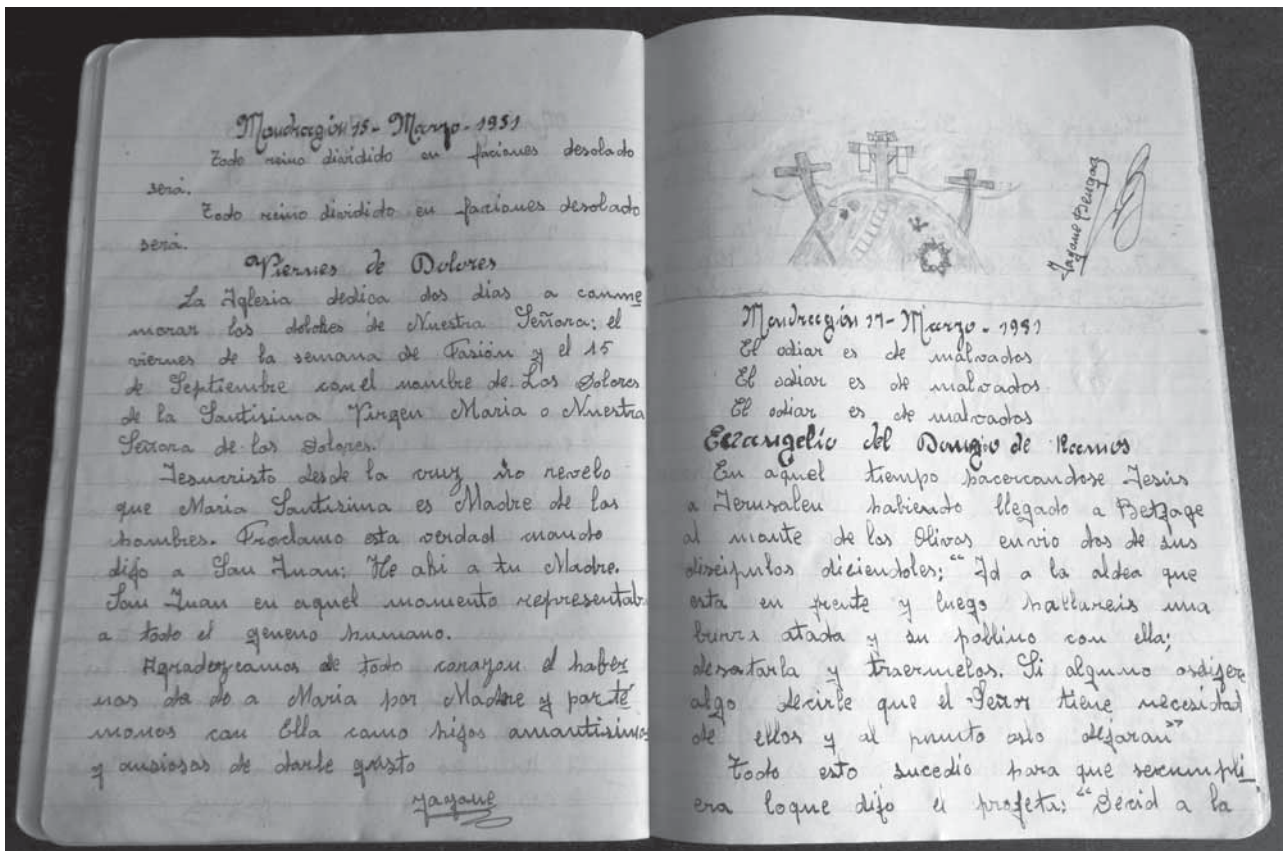 Mondragón 15- Marzo - 1951
Todo reino dividido en faciones desolado
será.
Todo reino dividido en faciones desolado
será.
Viernes de Dolores
La Iglesia dedica dos dias a conme
morar los dolores de Nuestra Señora: el
viernes de la semana de Pasión y el 15
de Septiembre con el nombre de. Los Dolores
de la Santisima Virgen Maria o Nuestra
Señora de los Dolores.
Jesucristo desde la cruz no revelo
que Maria Santisima es Madre de los
hombres. Proclamo esta verdad cuando
dijo a San Juan: He ahi a tu Madre.
San Juan en aquel momento representab
a todo el geneno humano.
Agradezcamos de todo corazon el haber
nos da do a Maria por Madre y porté
monos con Ella como hijos amantisimos
y ansiosos de darle gusto
Jagone
Jagone
Mondragón 17- Marzo - 1951
El odiar es de malvados
El odiar es de malvados.
El odiar es de malvados
Evangelio del Domgio de Ramos
En aquel tiempo hacercandose Jesús
a Jerusalen habiendo llegado a Betzage
al monte de los Olivos envio dos de sus
discipulos diciendoles; "Id a la aldea que
esta en frente y luego hallareis una
burra atada y su pollino con ella;
desatarla y traermelos. Si alguno osdijere
algo decirle que el Señor tiene necesidad
de ellos y al punto oslo dejaran"
Todo esto sucedio para que secumpli
era loque dijo el profeta: "Decid a la